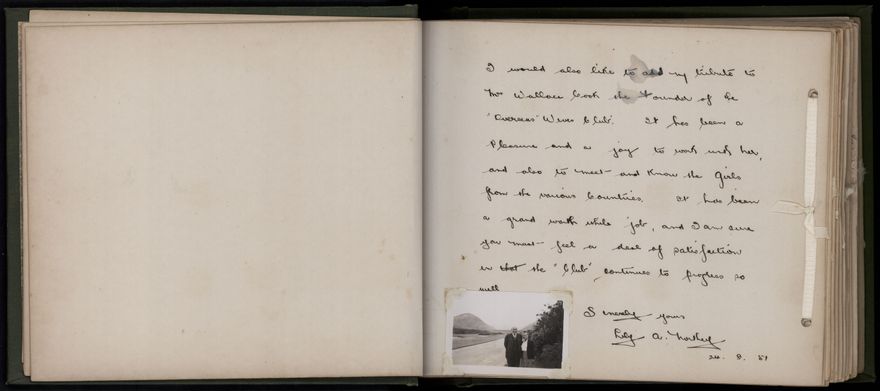 I would also like to add my tribute to
Mrs Wallace Cook the Founder of the
"Overseas" Wives Club". It has been a
pleasure and a joy to work with her,
and also to meet and know the girls
from the various Countries. It has been
a grand worth while job, and I am sure
you must feel a deal of satisfaction
in that the "Club", continues to progress so
well
Sincerely yours
A.
24. 8. 51